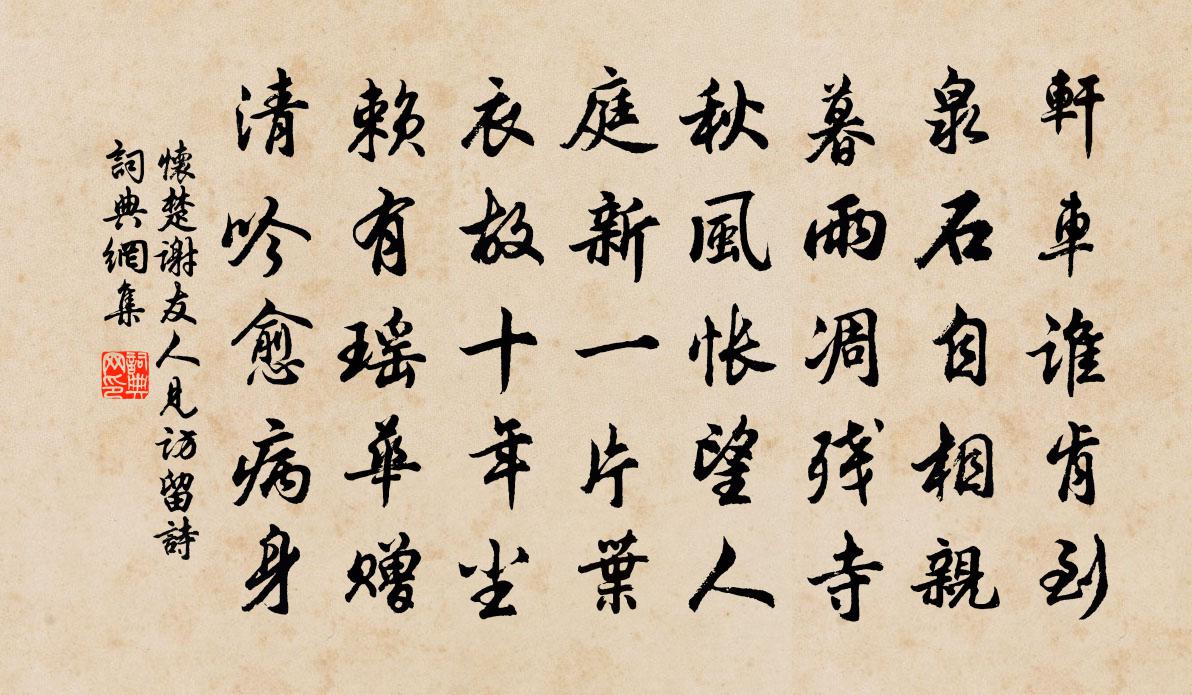 軒車誰肯到
泉石自相親
暮雨凋残寺
秋風悵望人
庭新一片葉
衣故十年尘
赖有瑶華赠
清吟愈病身
懷楚謝友人見訪留詩
詞典網集
詞典网印